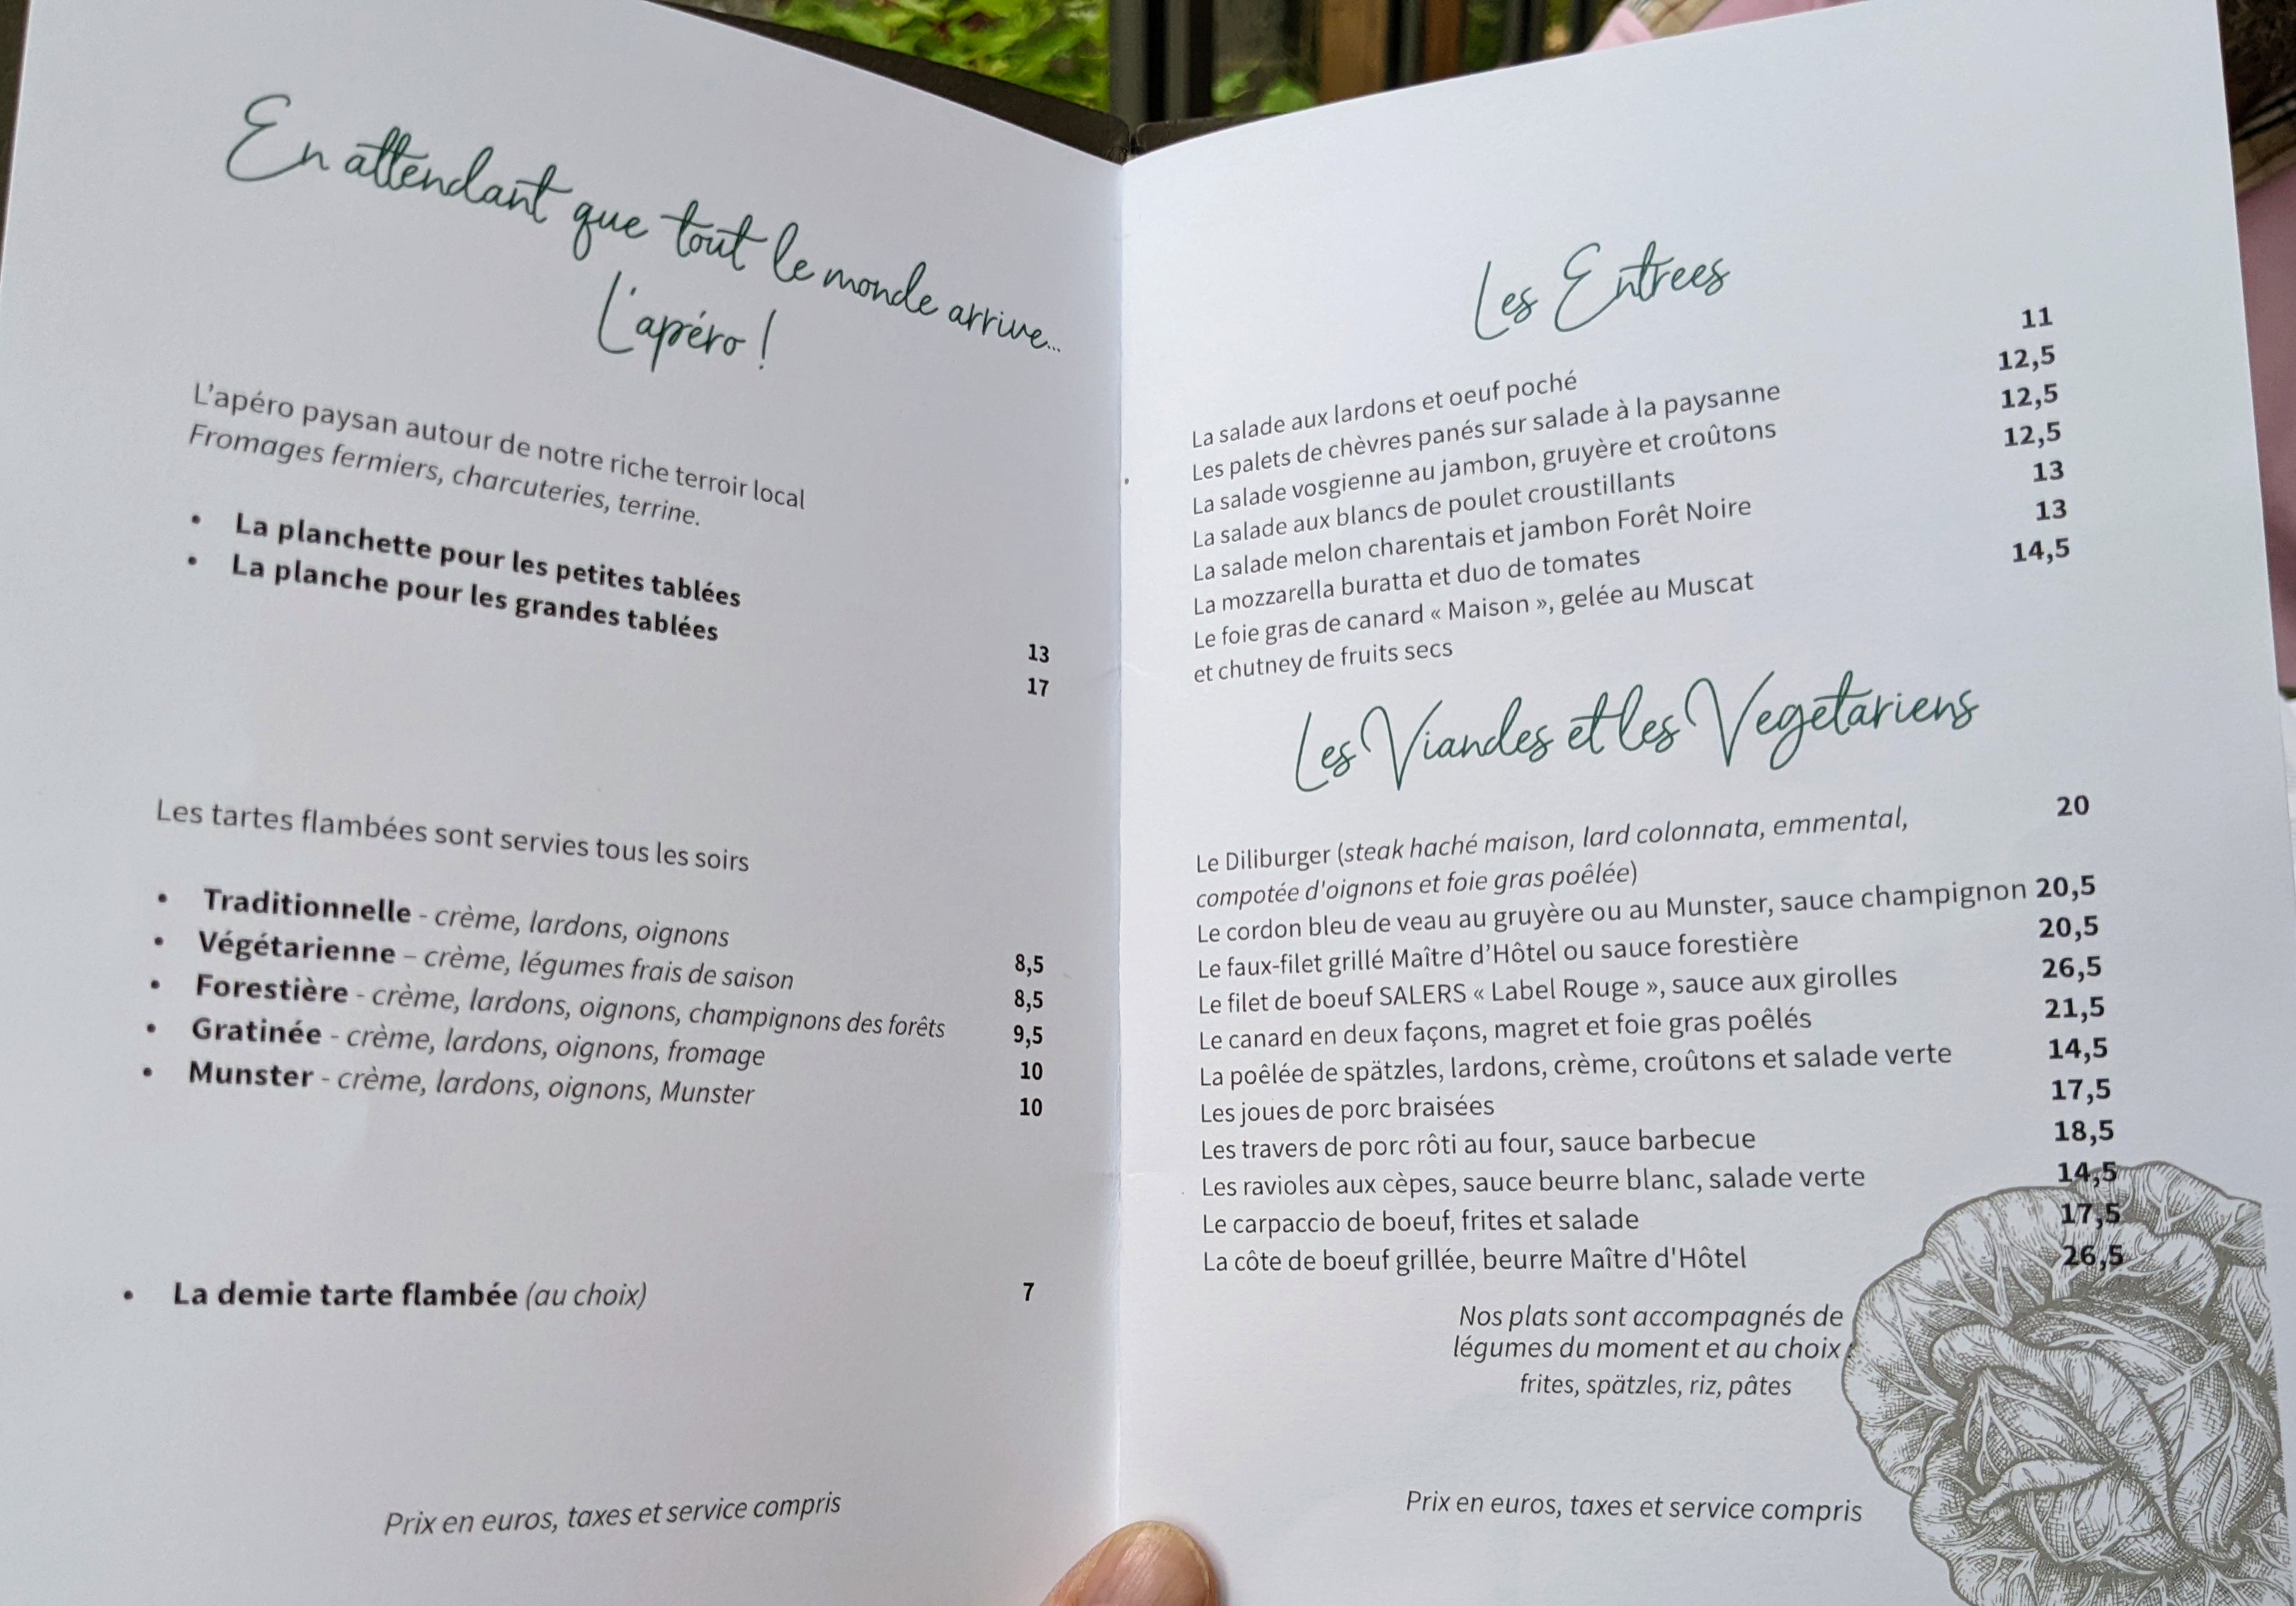 En attendant que tout le monde arrive...
L'apéro !
L'apéro paysan autour de notre riche terroir local
Fromages fermiers, charcuteries, terrine.
• La planchette pour les petites tablées 13
• La planche pour les grandes tablées 17
Les tartes flambées sont servies tous les soirs
• Traditionnelle - crème, lardons, oignons 8,5
• Végétarienne – crème, légumes frais de saison 8,5
• Forestière - crème, lardons, oignons, champignons des forêts 9,5
• Gratinée - crème, lardons, oignons, fromage 10
• Munster - crème, lardons, oignons, Munster 10
• La demie tarte flambée (au choix) 7
Prix en euros, taxes et service compris
Les Entrees
La salade aux lardons et oeuf poché 11
Les palets de chèvres panés sur salade à la paysanne 12,5
La salade vosgienne au jambon, gruyère et croûtons 12,5
La salade aux blancs de poulet croustillants 12,5
La salade melon charentais et jambon Forêt Noire 13
La mozzarella buratta et duo de tomates 13
Le foie gras de canard « Maison », gelée au Muscat 14,5
et chutney de fruits secs
Les Viandes et les Vegetariens
Le Diliburger (steak haché maison, lard colonnata, emmental, 20
compotée d'oignons et foie gras poêlée)
Le cordon bleu de veau au gruyère ou au Munster, sauce champignon 20,5
Le faux-filet grillé Maître d'Hôtel ou sauce forestière 20,5
Le filet de boeuf SALERS « Label Rouge », sauce aux girolles 26,5
Le canard en deux façons, magret et foie gras poêlés 21,5
La poêlée de spätzles, lardons, crème, croûtons et salade verte 14,5
Les joues de porc braisées 17,5
Les travers de porc rôti au four, sauce barbecue 18,5
Les ravioles aux cèpes, sauce beurre blanc, salade verte 14,5
Le carpaccio de boeuf, frites et salade 17,5
La côte de boeuf grillée, beurre Maître d'Hôtel 26,5
Nos plats sont accompagnés de
légumes du moment et au choix :
frites, spätzles, riz, pâtes
Prix en euros, taxes et service compris